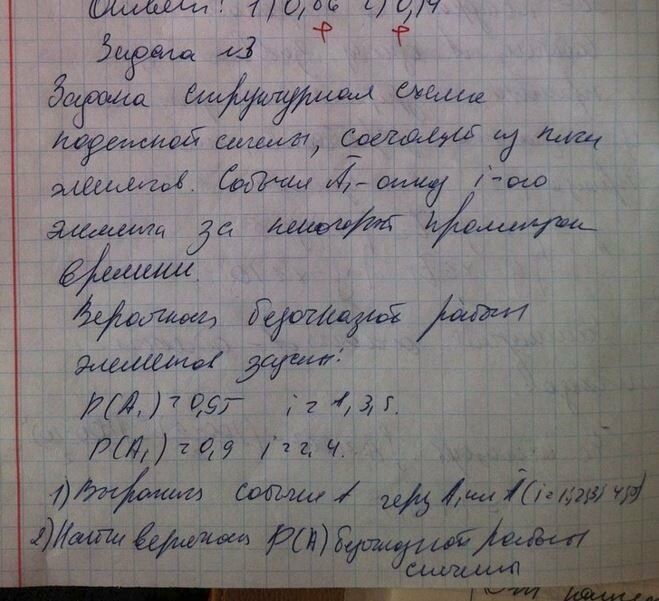 Ответ: 1) 0,86 2) 0,14
+ +
Задача №3
Задана структурная схема
надежной системы, состоящей из пяти
элементов. Событие Āi - отказ i-ого
элемента за некоторый промежуток
времени.
Вероятность безотказной работы
элементов заданы:
P(Ai) = 0,95 i = 1, 3, 5.
P(Ai) = 0,9 i = 2, 4.
1) Выразить событие A через Ai или Āi (i = 1,2,3,4,5)
2) Найти вероятность P(A) безотказной работы
системы